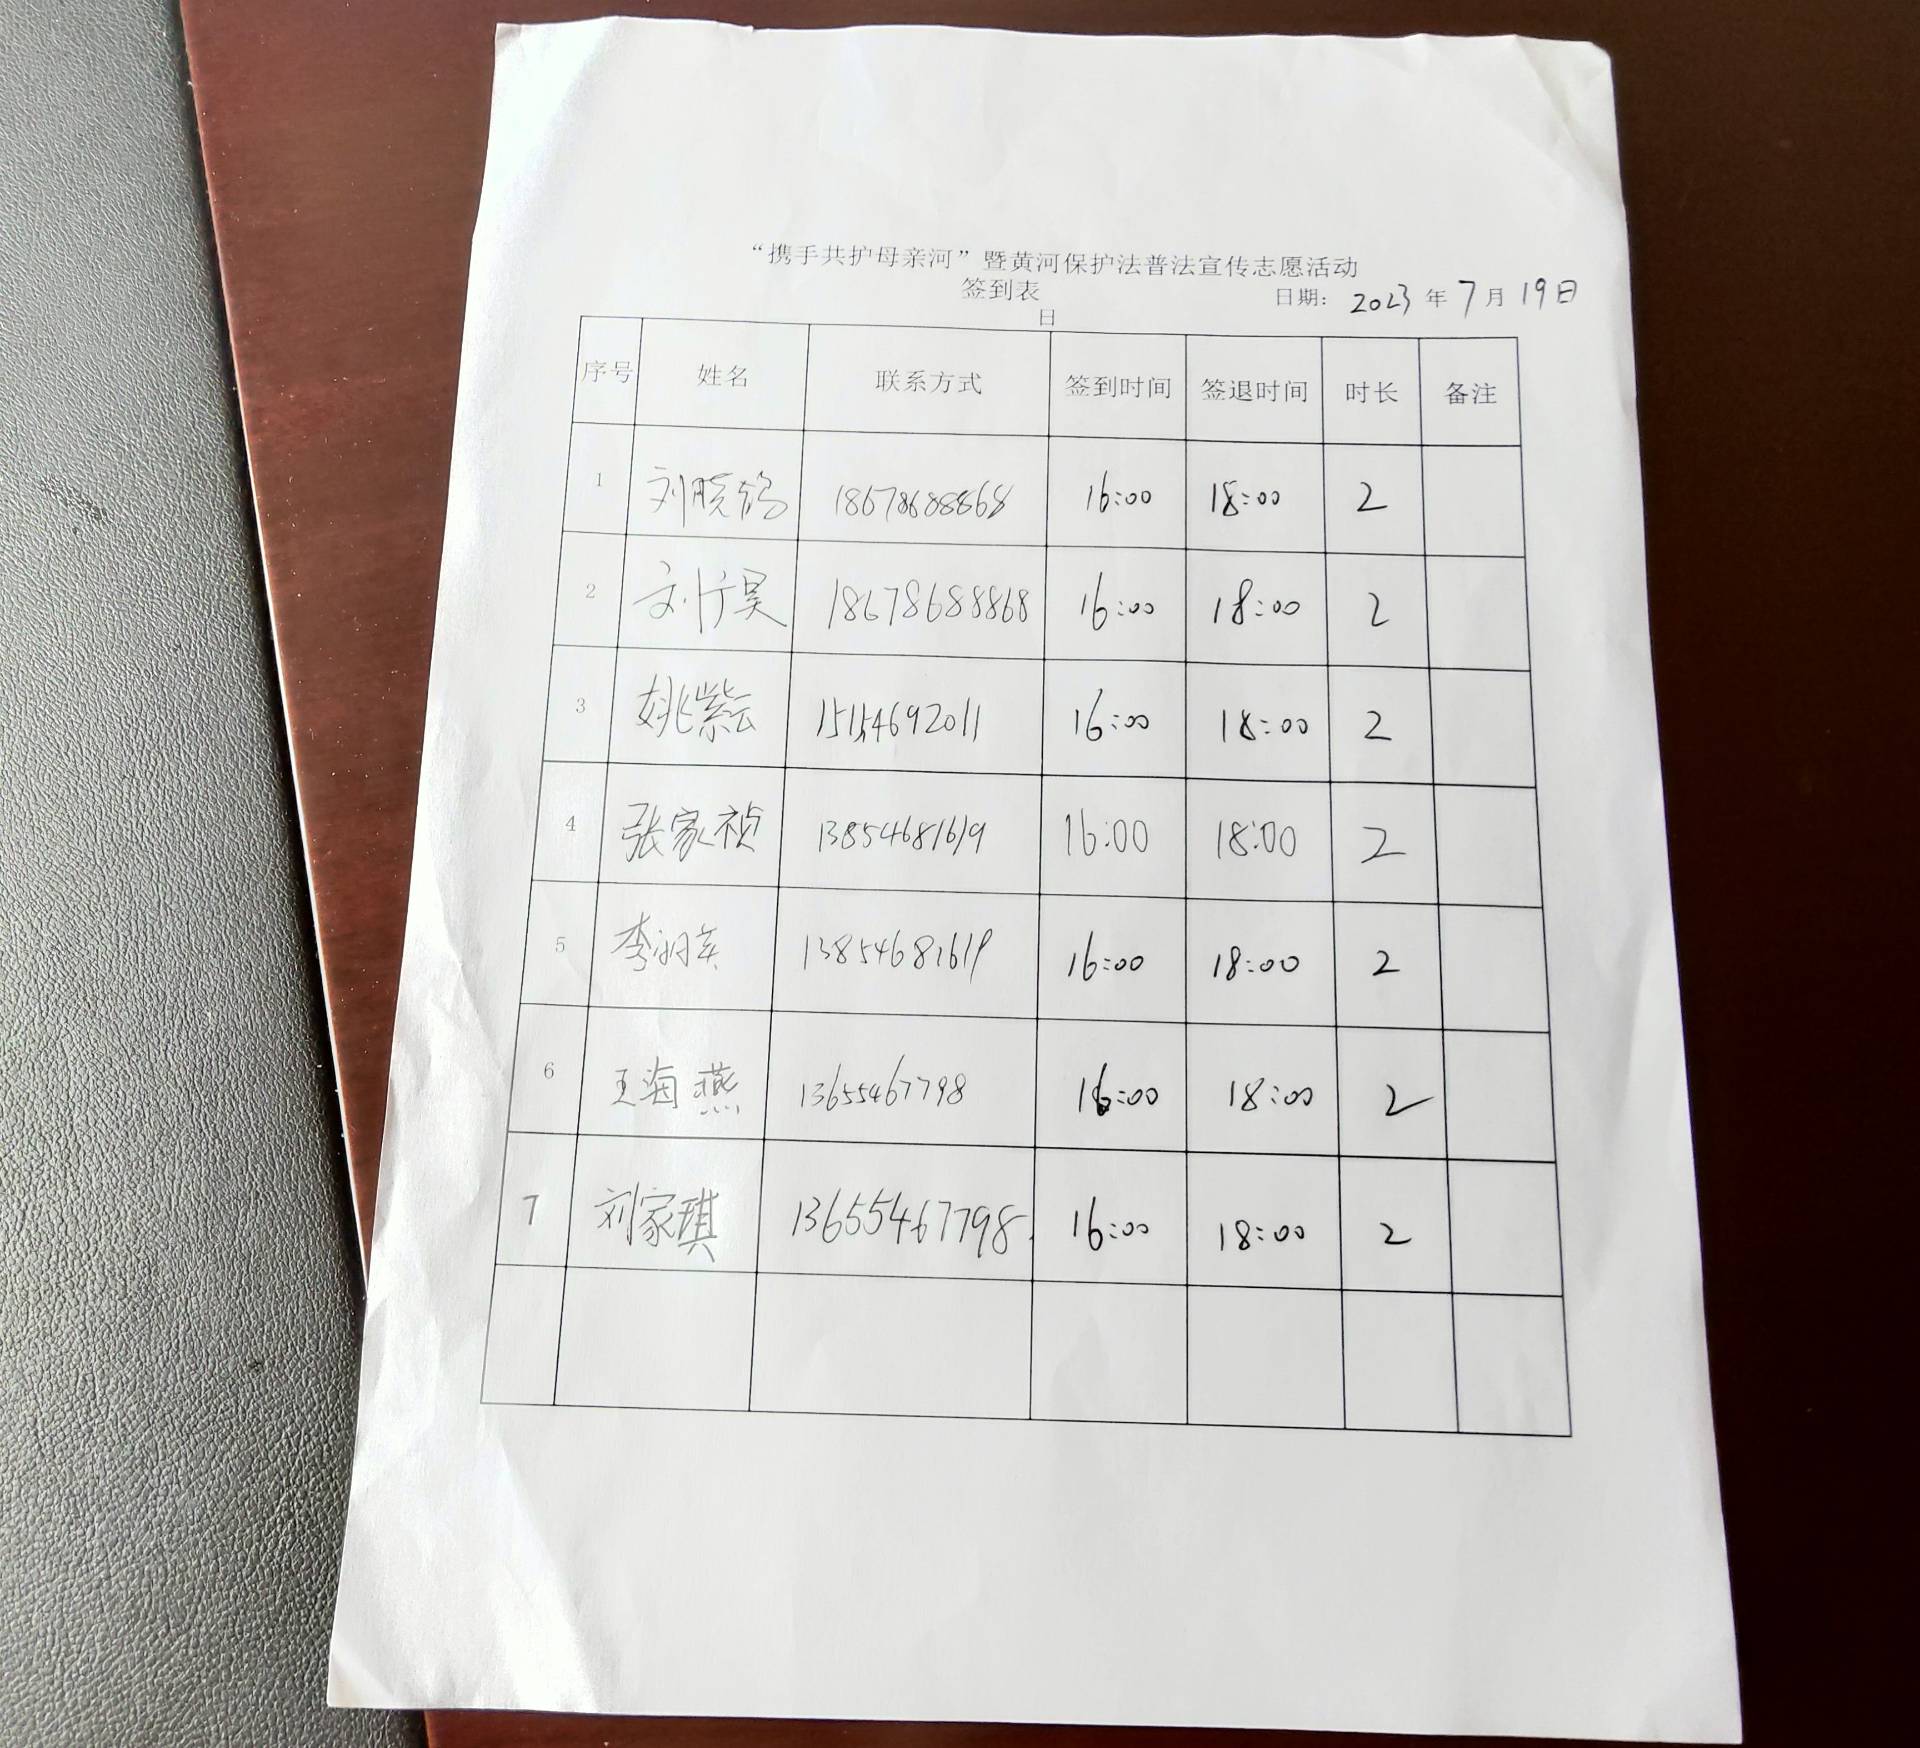 “携手共护母亲河”暨黄河保护法普法宣传志愿活动
签到表 日期： 2023 年 7 月 19日
日
序号 姓名 联系方式 签到时间 签退时间 时长 备注
1 刘晓鸽 18678688868 16:00 18:00 2
2 刘昊 18678688868 16:00 18:00 2
3 姚紫云 15154692011 16:00 18:00 2
4 张家祯 13854681619 16:00 18:00 2
5 李 13854681619 16:00 18:00 2
6 王海燕 13655467798 16:00 18:00 2
7 刘家琪 13655467798 16:00 18:00 2